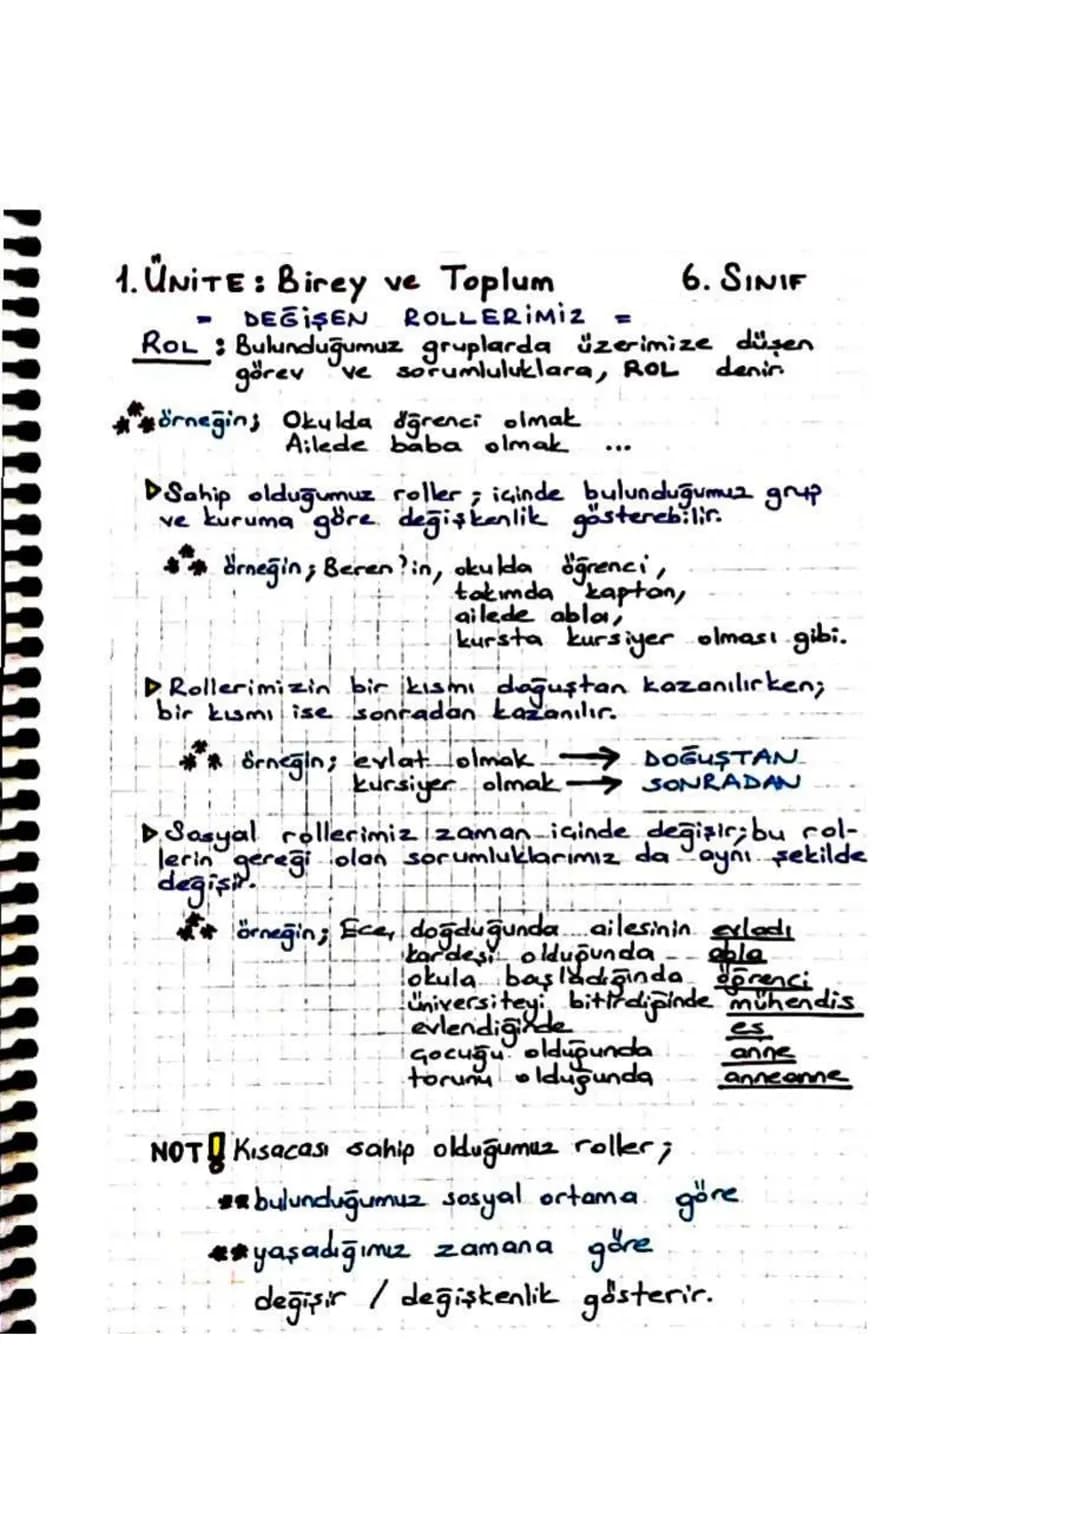 1. ÜNİTE : Birey ve Toplum 6. SINIF
- DEĞİŞEN ROLLERİMİZ =
ROL : Bulunduğumuz gruplarda üzerimize düşen
görev ve sorumluluklara, ROL denir.
** örneğin; Okulda öğrenci olmak
Ailede baba olmak ...
▷ Sahip olduğumuz roller ; içinde bulunduğumuz grup
ve kuruma göre değişkenlik gösterebilir.
** örneğin ; Beren'in, okulda öğrenci,
takımda kaptan,
ailede abla,
kursta kursiyer olması gibi.
▷ Rollerimizin bir kısmı doğuştan kazanılırken;
bir kısmı ise sonradan kazanılır.
** örneğin; evlat olmak → DOĞUŞTAN
kursiyer olmak → SONRADAN
▷ Sosyal rollerimiz zaman içinde değişir; bu rol-
lerin gereği olan sorumluklarımız da aynı şekilde
değişir.
** örneğin; Ece, doğduğunda ailesinin evladı
kardeşi olduğunda abla
okula başladığında öğrenci
üniversiteyi bitirdiğinde mühendis
evlendiğinde eş
çocuğu olduğunda anne
torunu olduğunda anneanne
NOT! Kısacası sahip olduğumuz roller ;
** bulunduğumuz sosyal ortama göre
** yaşadığımız zamana göre
değişir / değişkenlik gösterir.